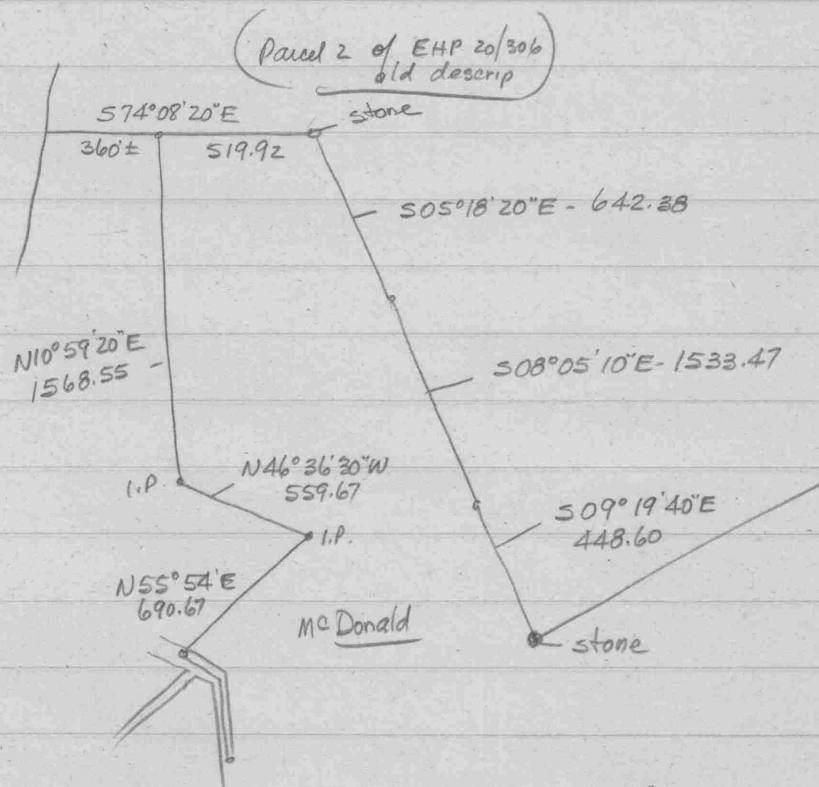 Parcel 2 of EHP 20/306
old descrip
S74°08'20"E
stone
360'±
519.92
S05°18'20"E - 642.38
N10°59'20"E
1568.55
S08°05'10"E - 1533.47
I.P.
N46°36'30"W
559.67
I.P.
S09°19'40"E
448.60
N55°54'E
690.67
McDonald
stone